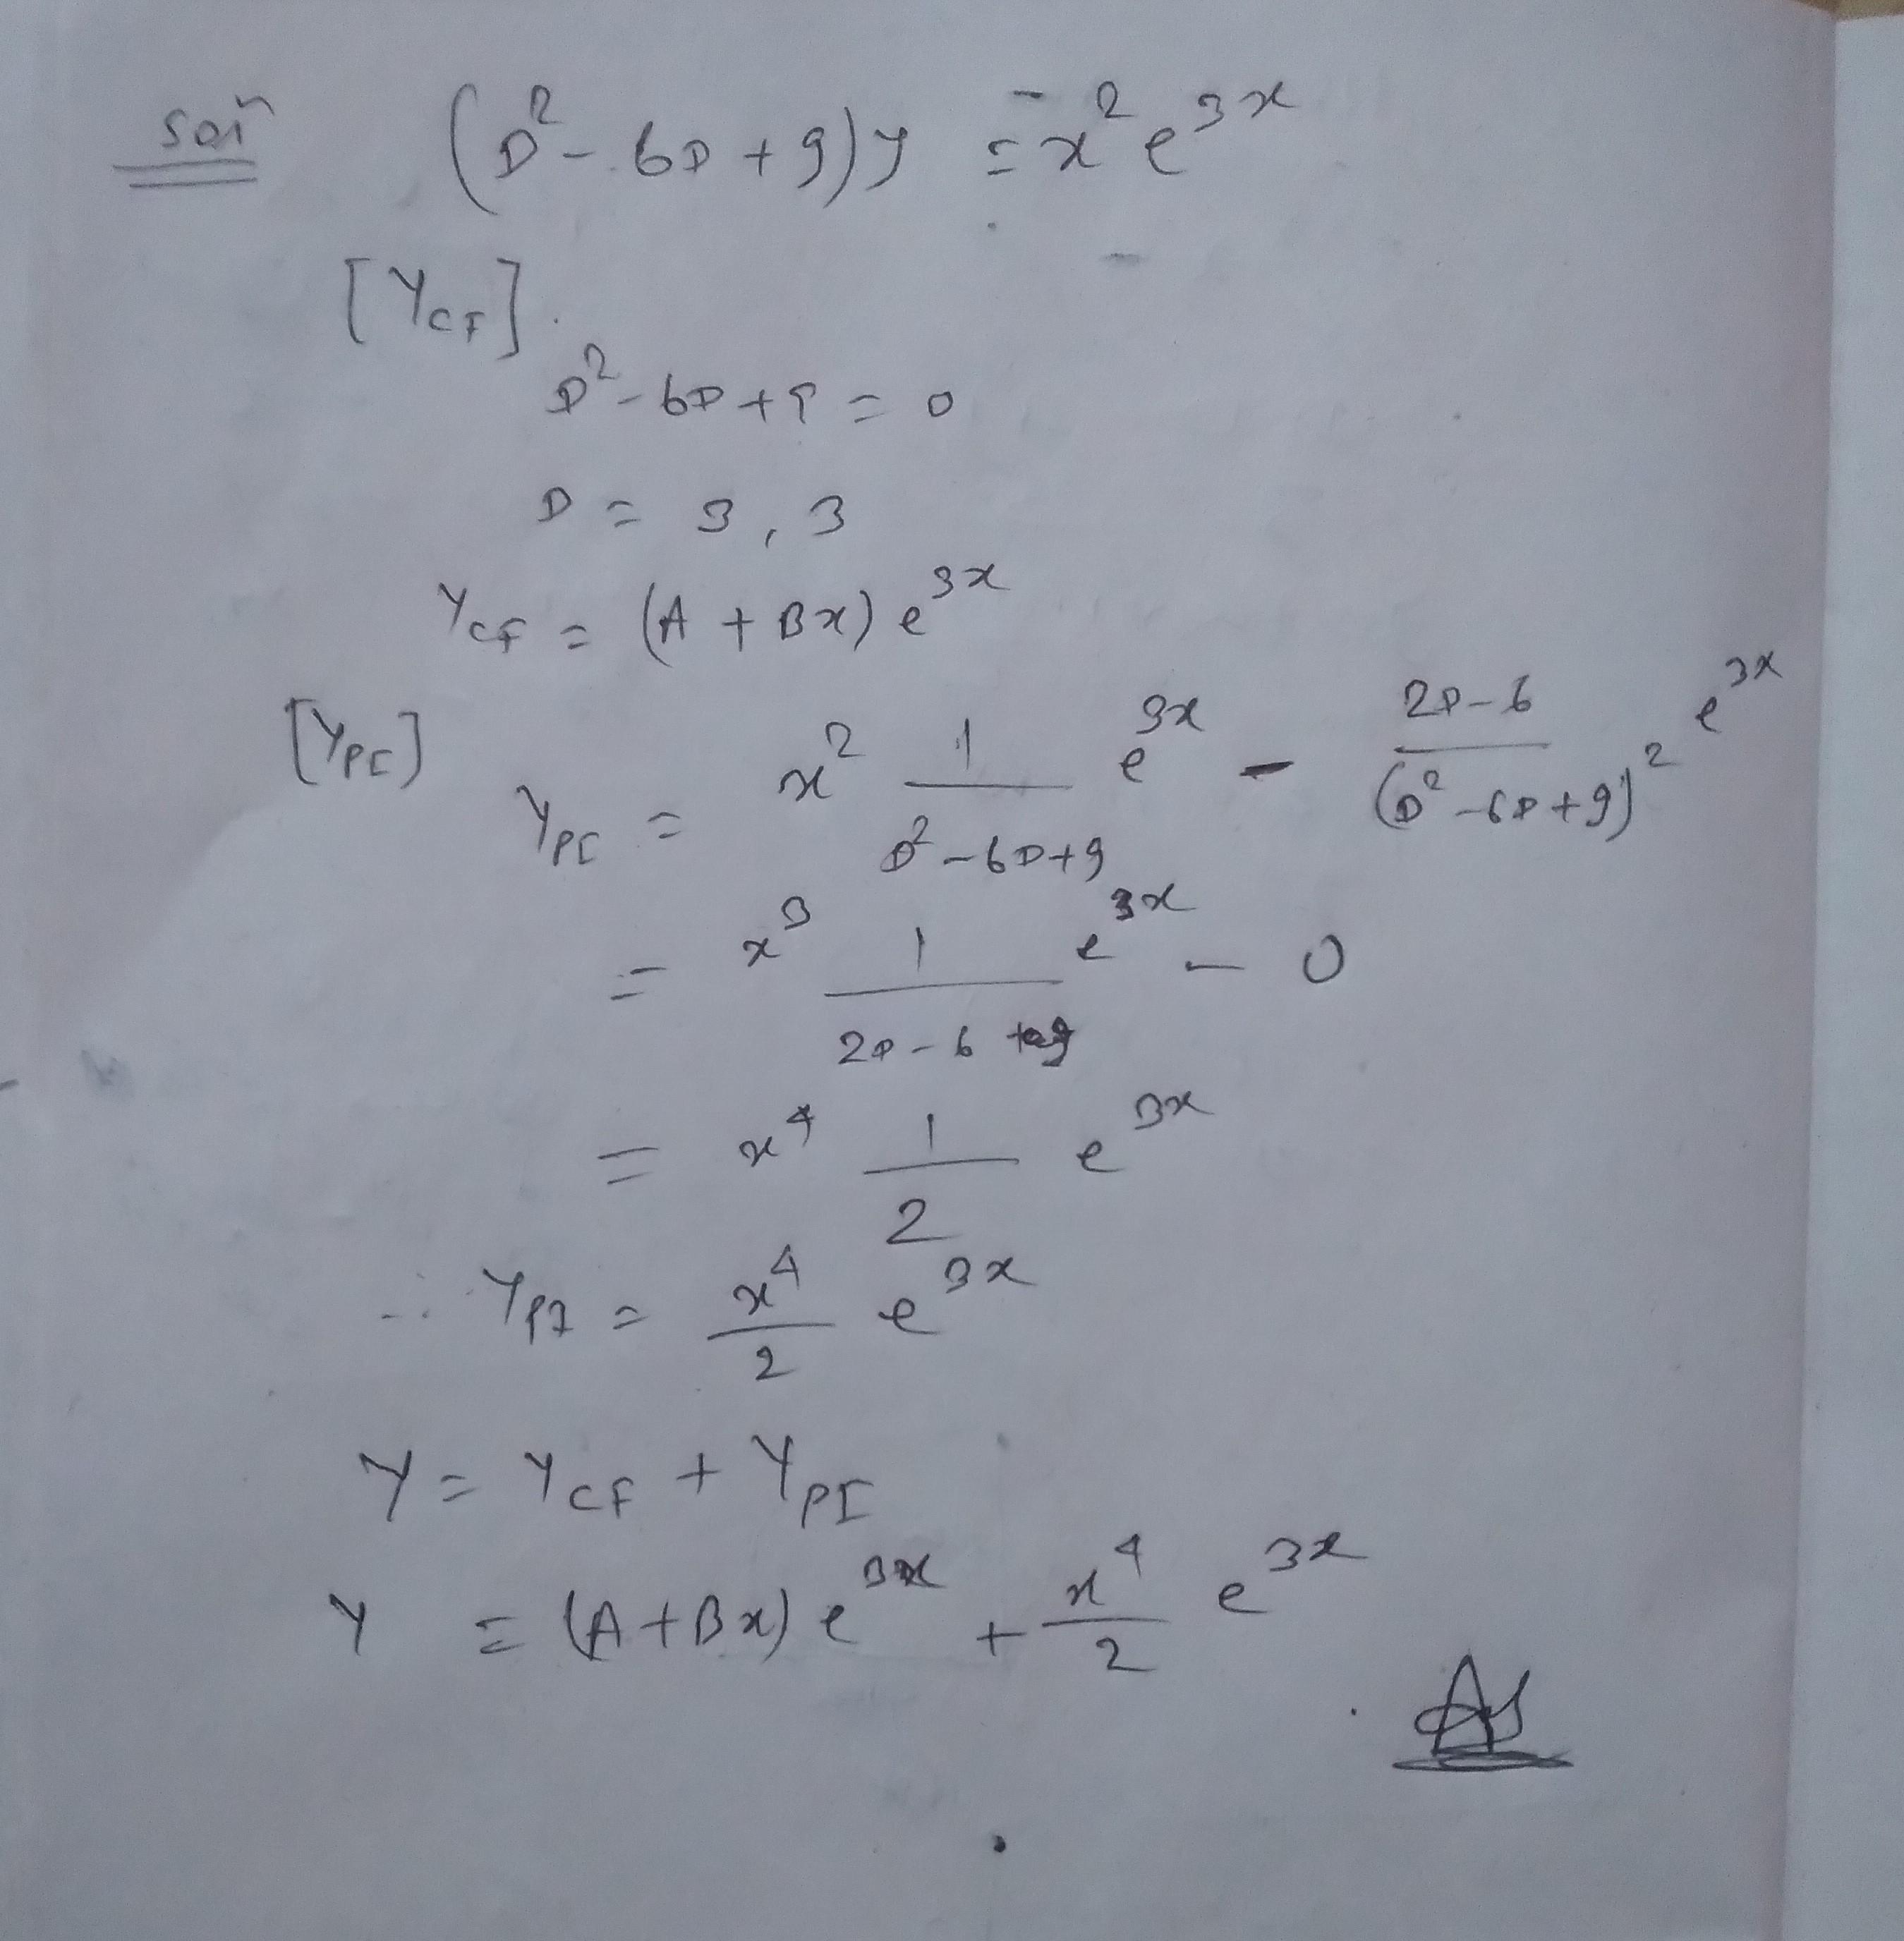 Soln (D² - 6D + 9) y = x² e^{3x}
[Y_{CF}]
D² - 6D + 9 = 0
D = 3, 3
Y_{CF} = (A + Bx) e^{3x}
[Y_{PI}] Y_{PI} = x² \frac{1}{D² - 6D + 9} e^{3x} - \frac{2D - 6}{(D² - 6D + 9)²} e^{3x}
= x³ \frac{1}{2D - 6} e^{3x} - 0
= x⁴ \frac{1}{2} e^{3x}
∴ Y_{PI} = \frac{x⁴}{2} e^{3x}
Y = Y_{CF} + Y_{PI}
Y = (A + Bx) e^{3x} + \frac{x⁴}{2} e^{3x}